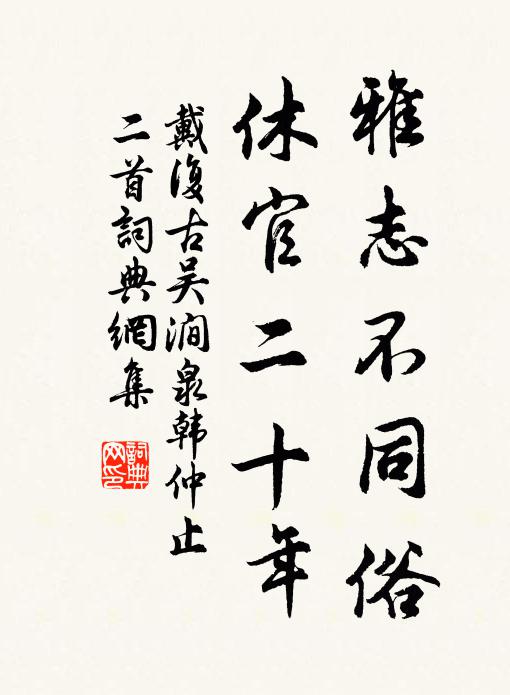 雅志不同俗
休官二十年
戴復古吴澗泉韩仲止
二首詞典網集
詞典网印